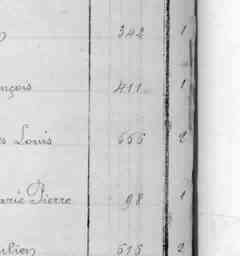 342 1
nçois 411 1
s Louis 666 2
arie Pierre 98 1
ulien 515 2